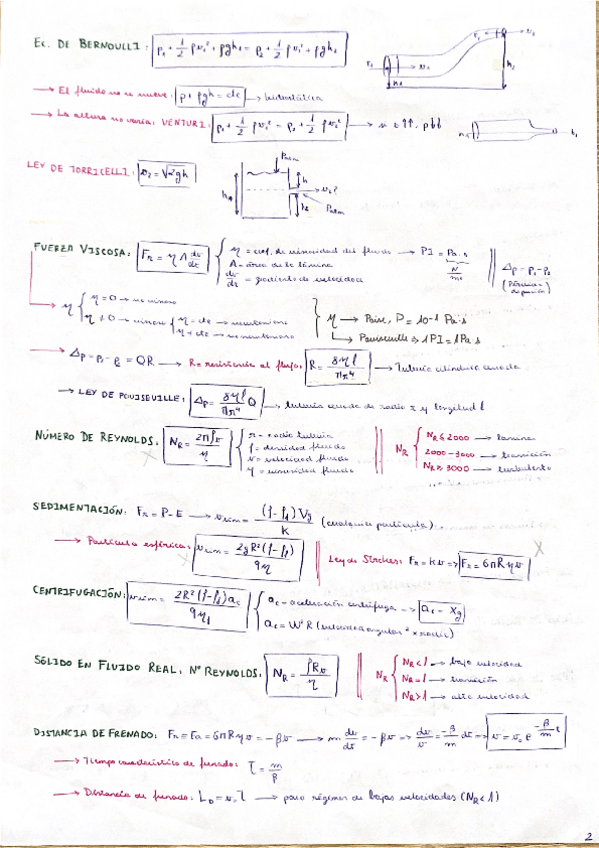 Ec. DE BERNOULLI: p₁ + 1/2 ρv₁² + ρgh₁ = p₂ + 1/2 ρv₂² + ρgh₂
→ El fluido no se mueve: p + ρgh = cte → hidrostática
→ La altura no varía: VENTURI: p₁ + 1/2 ρv₁² = p₂ + 1/2 ρv₂² →
LEY DE TORRICELLI: v₂ = √2gh
FUERZA VISCOSA: Fr = η A dv/dz
η = coef. de viscosidad del fluido → Pl = Pa·s
A = área de la lámina
dv/dz = gradiente de velocidad
Δp = p₁ - p₂
(Pérdida de presión)
η = 0 → no viscoso
η ≠ 0 → viscoso
η = cte → newtoniano
η ≠ cte → no newtoniano
η → Poise, P = 10⁻¹ Pa·s
→ Poiseuille → 1Pl = 1Pa·s
→ Δp = p₁ - p₂ = QR → R = resistencia al flujo: R = 8ηl/πr⁴ → Tubería cilíndrica
→ LEY DE POUISEUILLE: Δp = 8ηl/πr⁴ Q → tubería de radio r y longitud l
NÚMERO DE REYNOLDS: NR = 2rρv/η
r = radio tubería
ρ = densidad fluido
v = velocidad fluido
η = viscosidad fluido
NR
NR ≤ 2000 → laminar
2000 - 3000 → transición
NR ≥ 3000 → turbulento
SEDIMENTACIÓN: Fr = P - E → vsim = (ρ-ρf)Vg/K (cualquier partícula)
→ Partícula esférica: vsim = 2gR²(ρ-ρf)/9η
Ley de Stokes: Fr = kv => Fr = 6πRηv
CENTRIFUGACIÓN: vsim = 2R²(ρ-ρf)ac/9η
ac = aceleración centrífuga → ac = xg
ac = W²R (velocidad angular² × radio)
SÓLIDO EN FLUIDO REAL, Nº REYNOLDS: NR = ρRv/η
NR
NR < 1 → baja velocidad
NR = 1 → transición
NR > 1 → alta velocidad
DISTANCIA DE FRENADO: Fr = Fa = 6πRηv = -βv → m dv/dt = -βv → dv/v = -β/m dt → v = v₀ e^(-β/m t)
→ Tiempo característico de frenado: τ = m/β
→ Distancia de frenado: L₀ = v₀τ → para régimen de bajas velocidades (NR < 1)
2